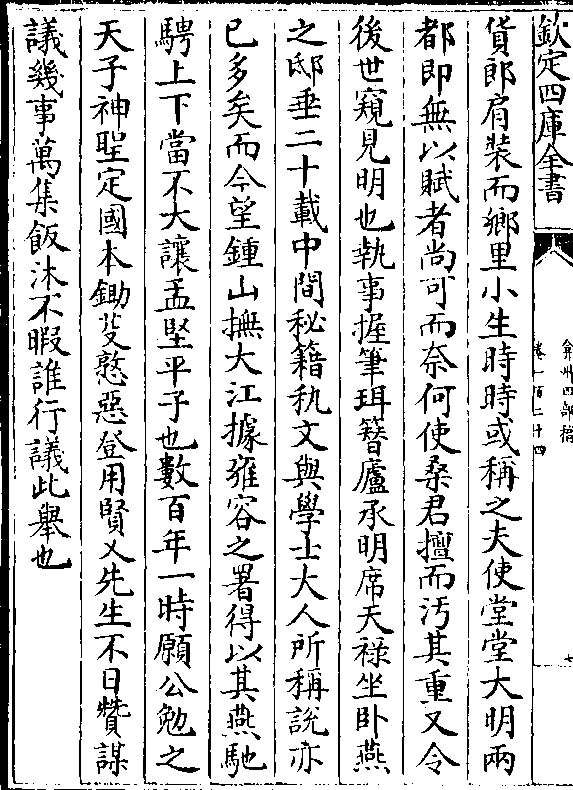 欽定四庫全書
弇州四部稿
卷一百二十四
七
貨郎肩裝而鄉里小生時時或稱之夫使堂堂大明兩
都即無以賦者尚可而奈何使桑君擅而汚其重又令
後世窺見明也執事握筆珥簪廬承明席天祿坐卧燕
之邸垂二十載中間秘籍秇文與學士大人所稱說亦
已多矣而今望鍾山撫大江據雍容之署得以其燕馳
騁上下當不大讓孟堅平子也數百年一時願公勉之
天子神聖定國本鋤芟憝惡登用賢乂先生不日贊謀
議幾事萬集飯沐不暇誰行議此舉也